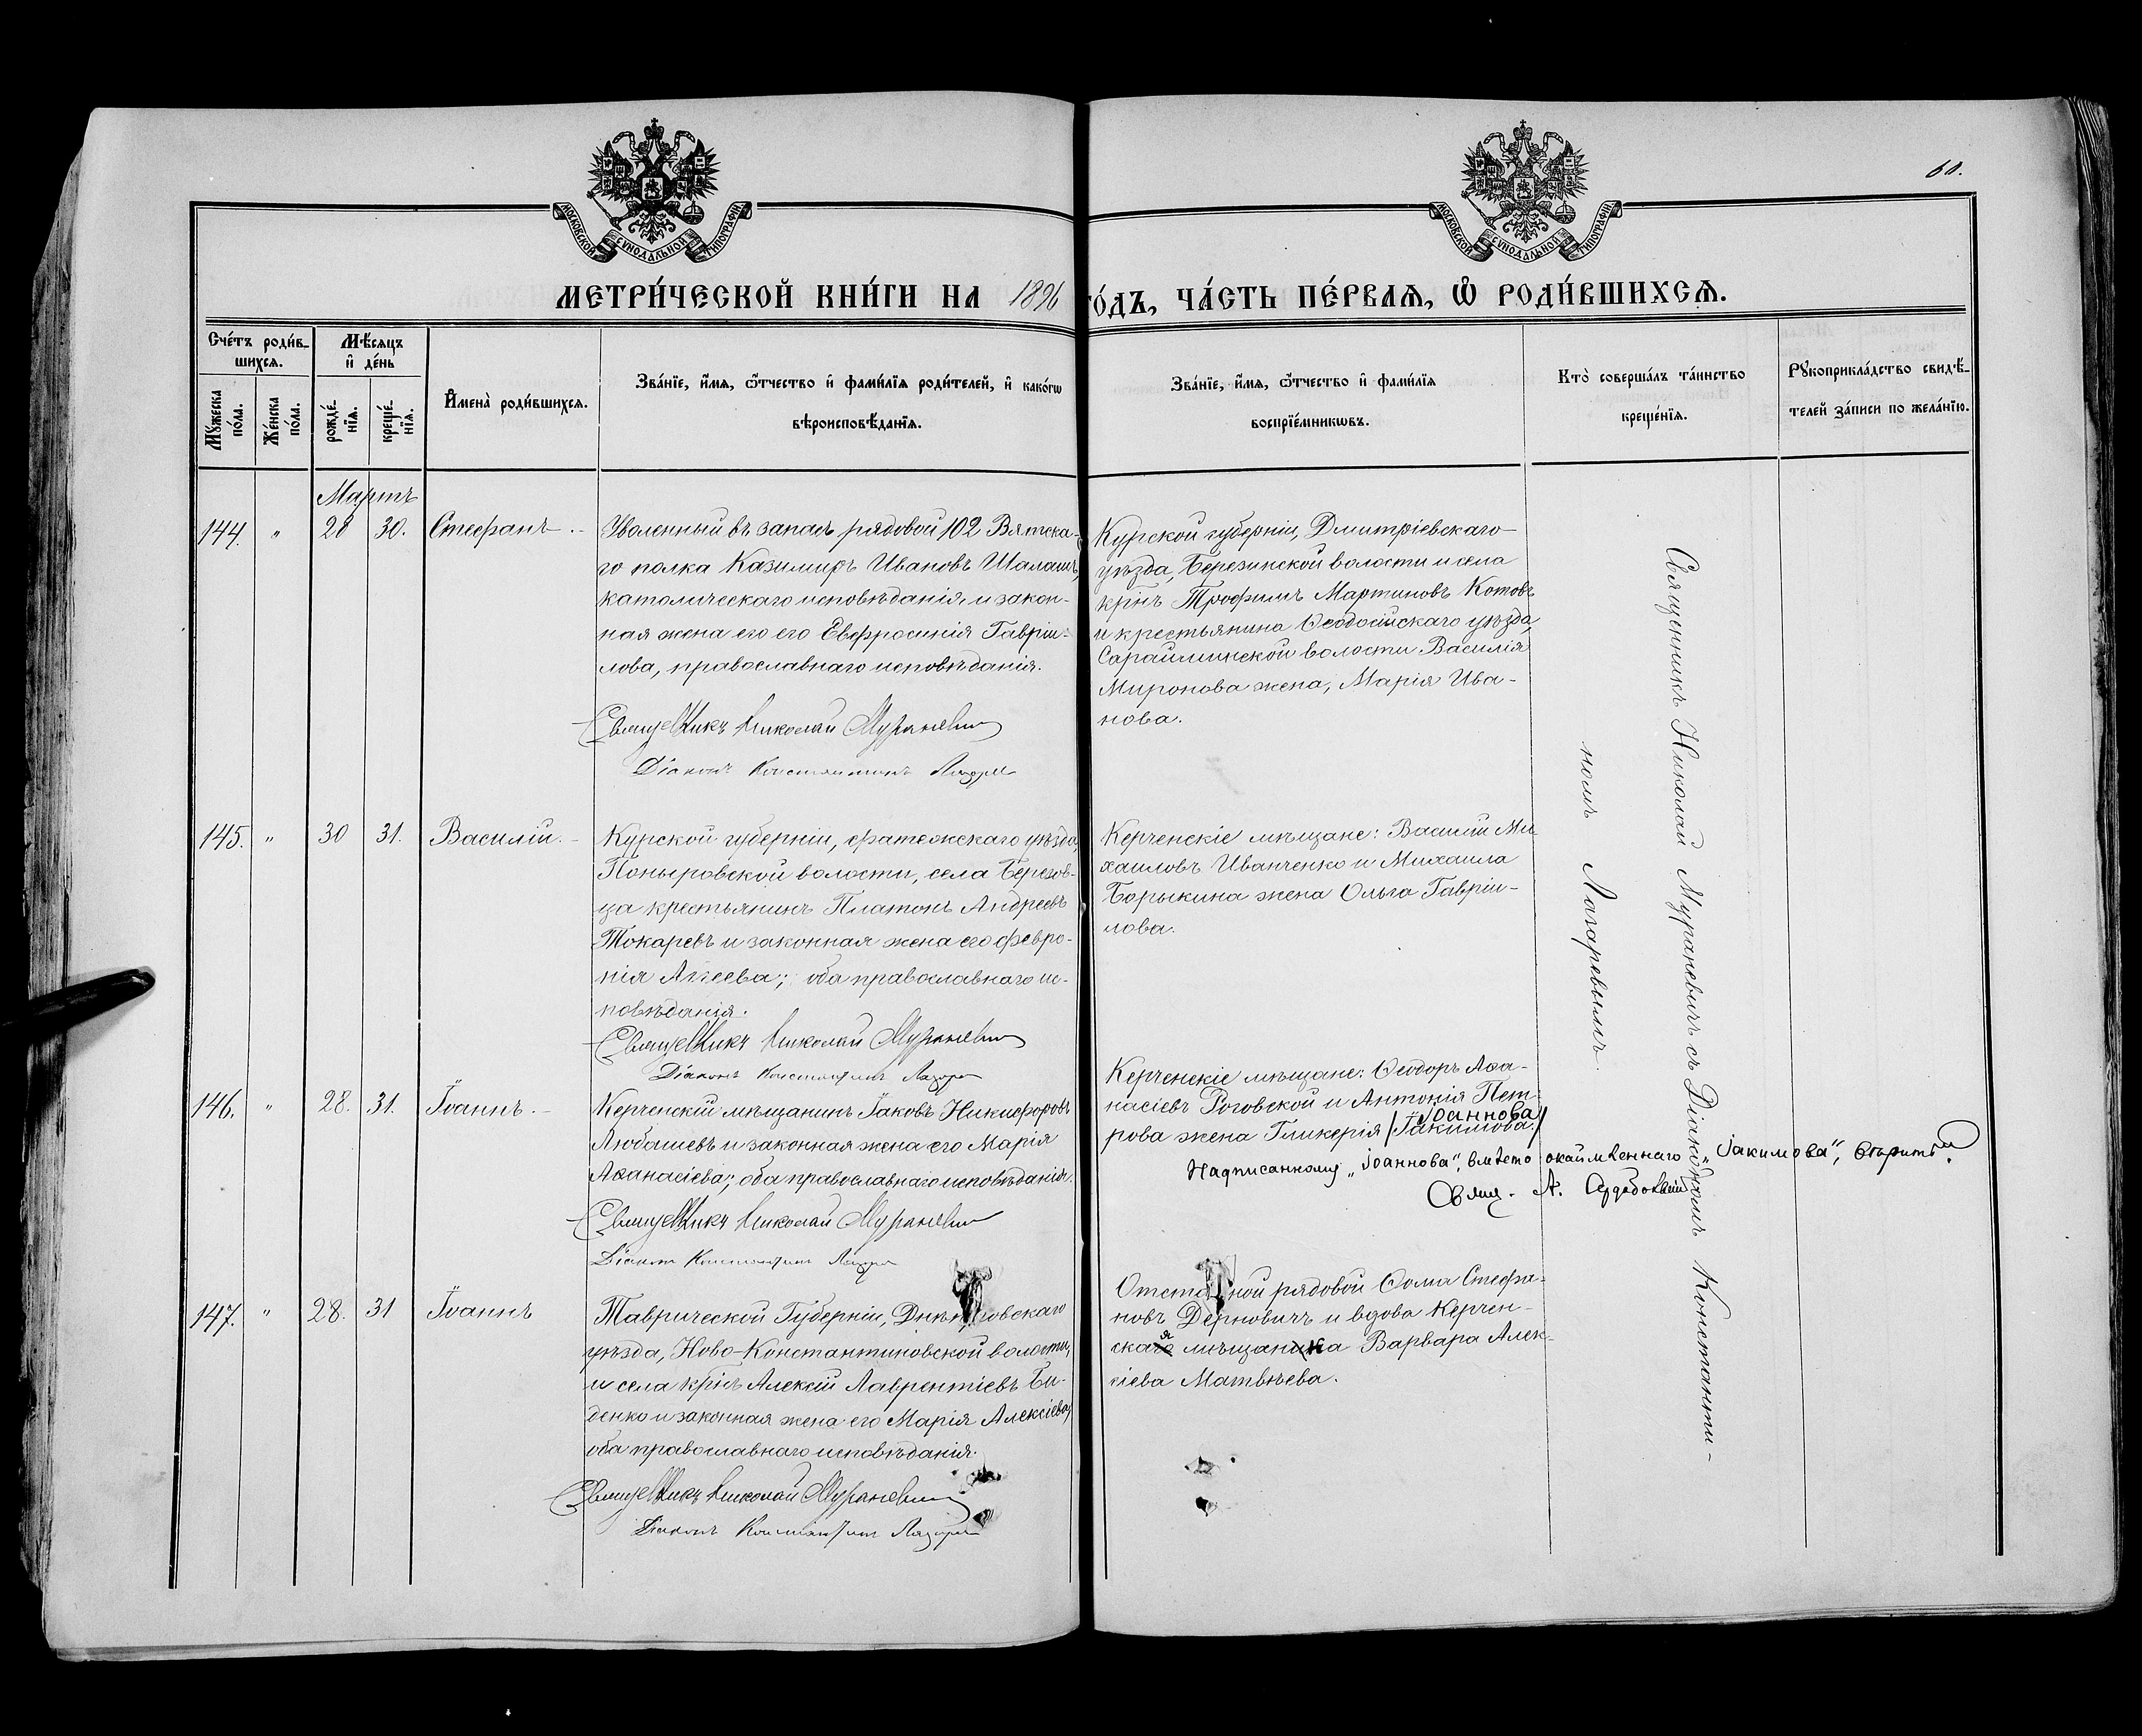 60.
МОСКОВСКОЙ СѴНОДАЛЬНОЙ ТИПОГРАФІИ
МОСКОВСКОЙ СѴНОДАЛЬНОЙ ТИПОГРАФІИ
МЕТРИ́ЧЕСКОЙ КНИ́ГИ НА 1896 ГО́ДЪ, ЧА́СТЬ ПЕ́РВАѦ, Ѡ҆ РОДИ́ВШИХСѦ.
Сче́тъ роди́в-
шихсѧ.
Мꙋ́жеска по́ла.
Же́нска по́ла.
Мѣ́сѧцъ
и҆ де́нь
рожде́-
нїѧ.
креще́-
нїѧ.
И҆мена̀ роди́вшихсѧ.
Зва́нїе, и҆́мѧ, ѻ҆́тчество и҆ фами́лїѧ роди́телей, и҆ како́гѡ
вѣроисповѣ́данїѧ.
Зва́нїе, и҆́мѧ, ѻ҆́тчество и҆ фами́лїѧ
воспрїе́мникѡвъ.
Кто̀ соверша́лъ та́инство
креще́нїѧ.
Рꙋкоприкла́дство свидѣ́-
телей за́писи по жела́нїю.
Мартъ
144. " 28 30. Стефанъ.-
Уволенный въ запасъ рядовой 102 Вятска-
го полка Казимиръ Ивановъ Шалашъ,
католическаго исповѣданія, и закон-
ная жена его его Евфросинія Гаврiи-
лова, православнаго исповѣданія.
Священникъ Николай Мураневич
Діаконъ Константинъ Лазарев
Курской губерніи, Дмитріевскаго
уѣзда, Березинской волости и села
крнъ Трофимъ Мартиновъ Котовъ
и крестьянина Ѳеодосійскаго уѣзда,
Сарайминской волости Василія
Миронова жена, Марія Ива-
нова.
145. " 30 31. Василій.-
Курской губерніи, Фатежскаго уѣзда,
Поныровской волости, села Березов-
ца крестьянинъ Платонъ Андреевъ
Токаревъ и законная жена его Февро-
нія Аггеева; оба православнаго ис-
повѣданія.
Священникъ Николай Мураневич
Діаконъ Константинъ Лазарев
Керченскіе мѣщане: Василій Ми-
хаиловъ Иванченко и Михаила
Борыкина жена Ольга Гавріи-
лова.
146. " 28. 31. Іоаннъ.-
Керченскій мѣщанинъ Іаковъ Никифоровъ
Любашевъ и законная жена его Марія
Аѳанасіева; оба православнаго исповѣданія.
Священникъ Николай Мураневич
Діаконъ Константинъ Лазарев
Керченскіе мѣщане: Ѳеодоръ Аѳа-
насіевъ Роговской и Антонія Пет-
Іоаннова
рова жена Гликерія /Іакимова./
Надписанному „Іоаннова", вмѣсто окаймленнаго „Іакимова",
Свящ. А.
147. " 28. 31 Іоаннъ
Таврической Губерніи, Днѣпровскаго
уѣзда, Ново-Константиновской волости,
и села крнъ Алексій Лаврентіевъ Би-
денко и законная жена его Марія Алексіева,
оба православнаго исповѣданія.
Священникъ Николай Мураневич
Діаконъ Константинъ Лазарев
Отставной рядовой Ѳома Стефа-
новъ Дерновичъ и вдова Керчен-
ская мѣщанка Варвара Алек-
сіева Матвѣева.
Священникъ Николай Мураневичъ съ Діакономъ Константи-
номъ Лазаревымъ.